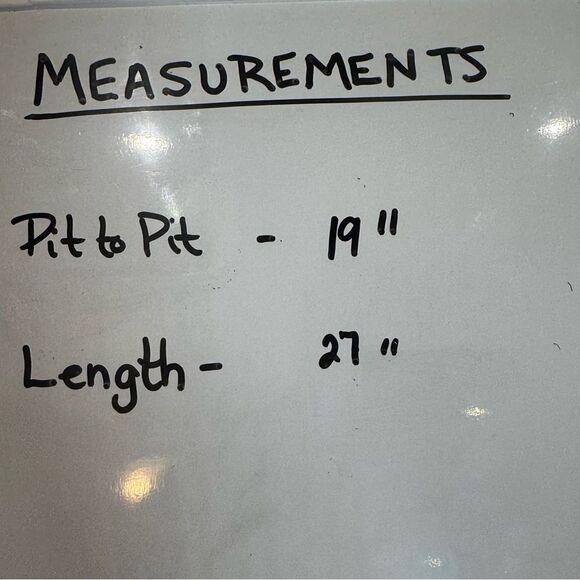 MEASUREMENTS
Pit to Pit - 19"
Length - 27"